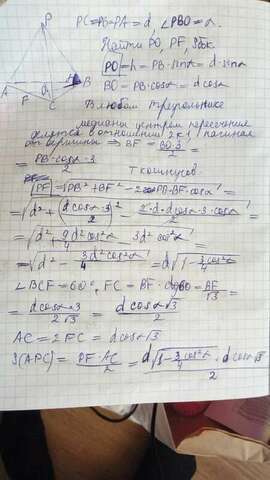 P
A
F
C
O
B
PC=PB=PA=d, ∠PBO=α.
Найти PO, PF, Sбок
PO=h=PB·sinα=d·sinα
BO=PB·cosα=dcosα
В любом треугольнике
медианы центром пересечения
делятся в отношении 2 к 1, начиная
от вершины ⇒ BF = BO·3/2 =
= PB·cosα·3/2
Т косинусов
PF = √PB²+BF²-2·PB·BF·cosα =
= √d²+(dcosα·3/2)² - 2·d·dcosα·3·cosα/2 =
= √d²+9/4 d²cos²α - 3d²cos²α =
= √d² - 3d²cos²α/4 = d√1-3/4cos²α
∠BCF=60°, FC = BF· = BF/√3 =
= dcosα·3/2√3 = dcosα√3/2
AC=2FC=dcosα√3
S(APC) = PF·AC/2 = d√1-3/4cos²α · dcosα√3/2